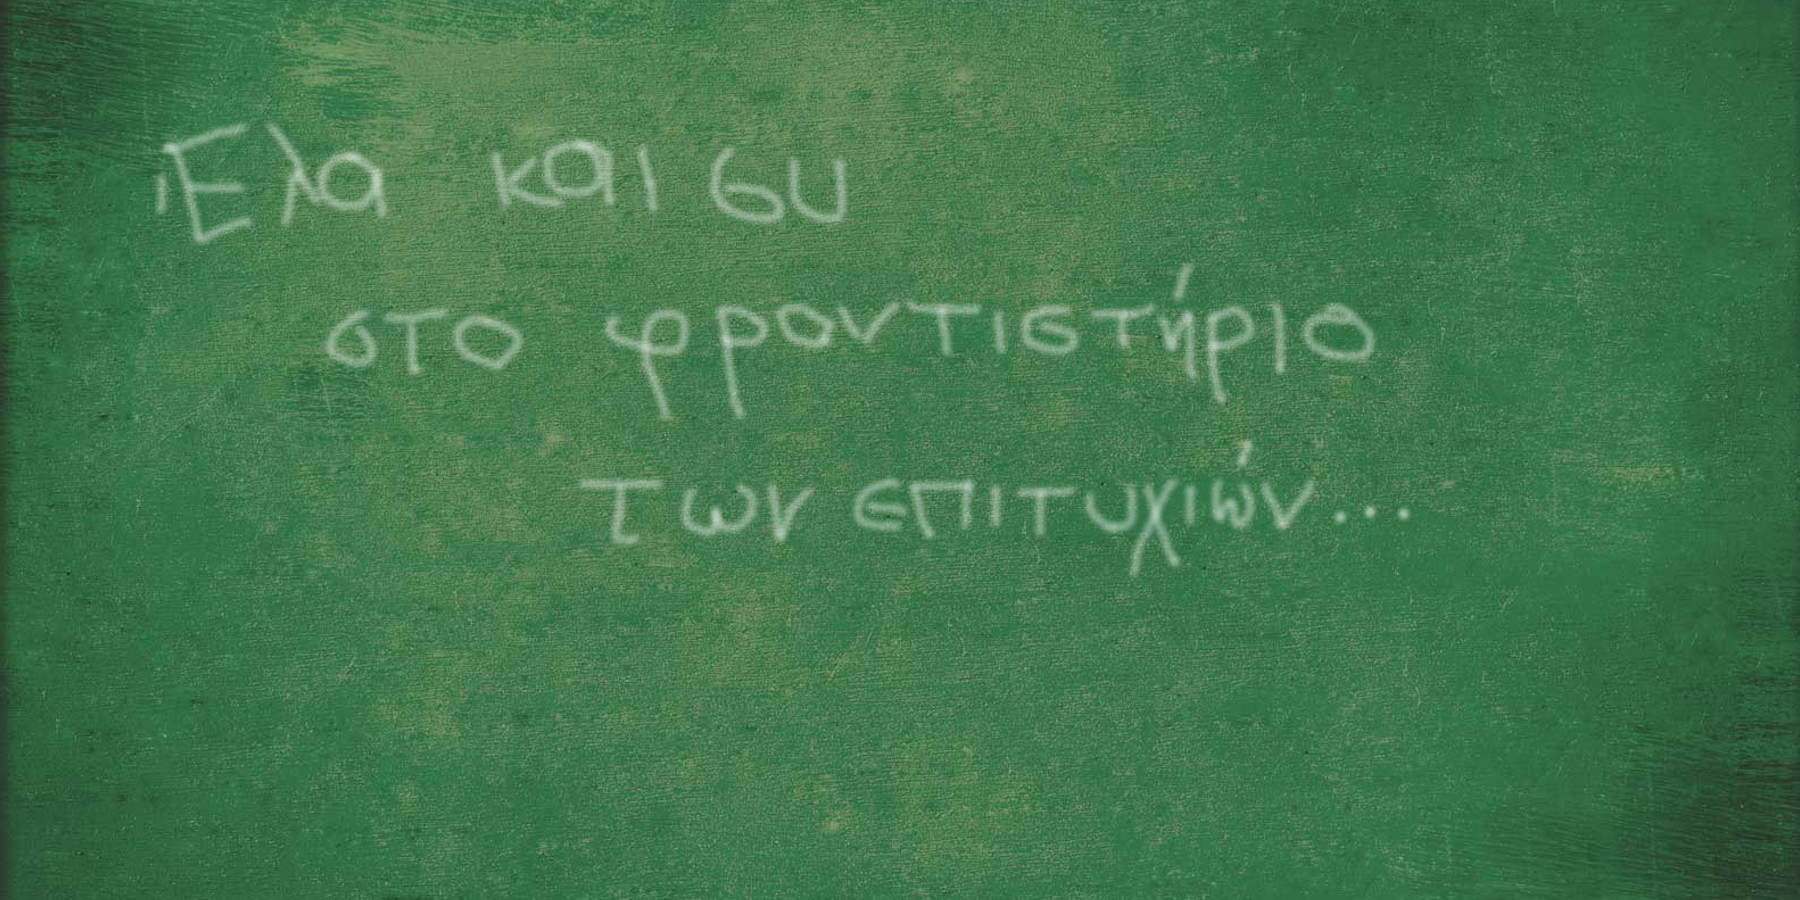 Έλα και συ
στο φροντιστήριο
των επιτυχιών...